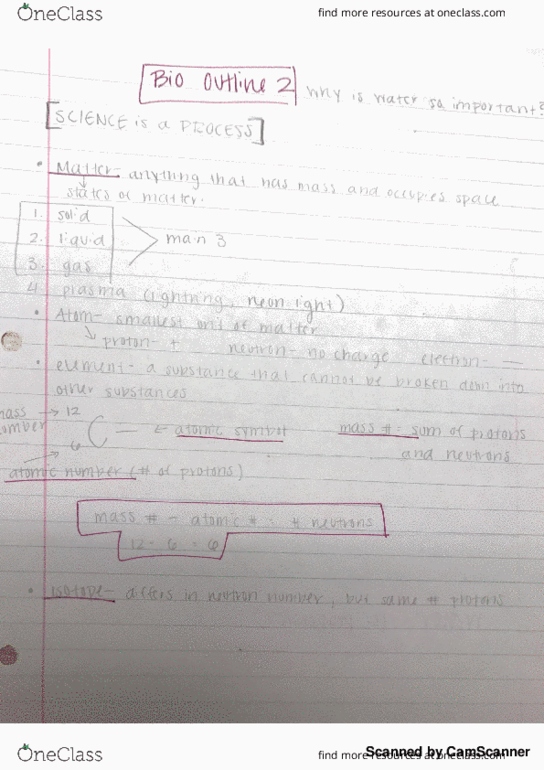 OneClass
find more resources at oneclass.com
Bio Outline 2 Why is water so important?
[SCIENCE is a PROCESS]
• Matter- anything that has mass and occupies space
states of matter.
1. solid
2. liquid
3. gas
main 3
4. plasma (lightning, neon light)
• Atom- smallest unit of matter
proton- + neutron- no charge electron- —
• element- a substance that cannot be broken down into
other substances
mass → 12
number
C — ← atomic symbol mass #- sum of protons
6
and neutrons
atomic number (# of protons)
mass # - atomic # = # neutrons
12 - 6 = 6
• isotope- differs in neutron number, but same # protons
OneClass
find more resources at oneclass.com
Scanned by CamScanner